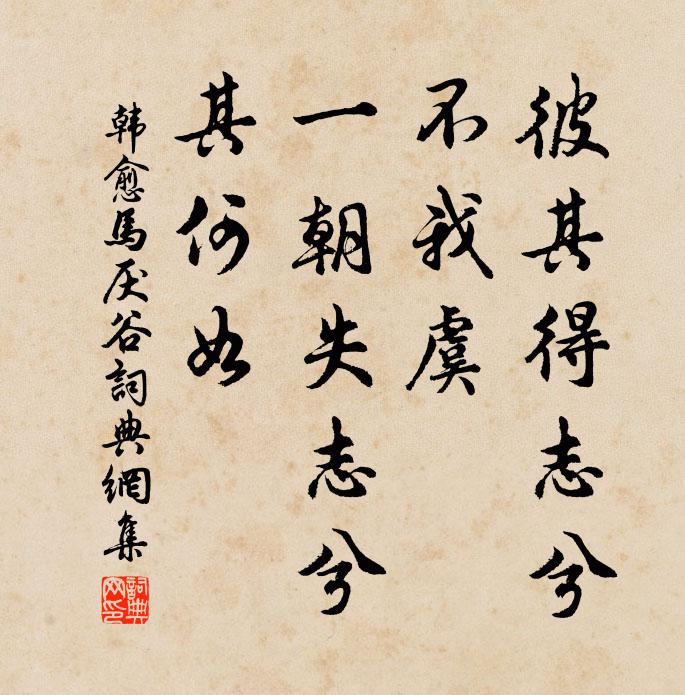 彼其得志兮
不我虞
一朝失志兮
其何如
韩愈馬厌谷詞典網集
詞典网印